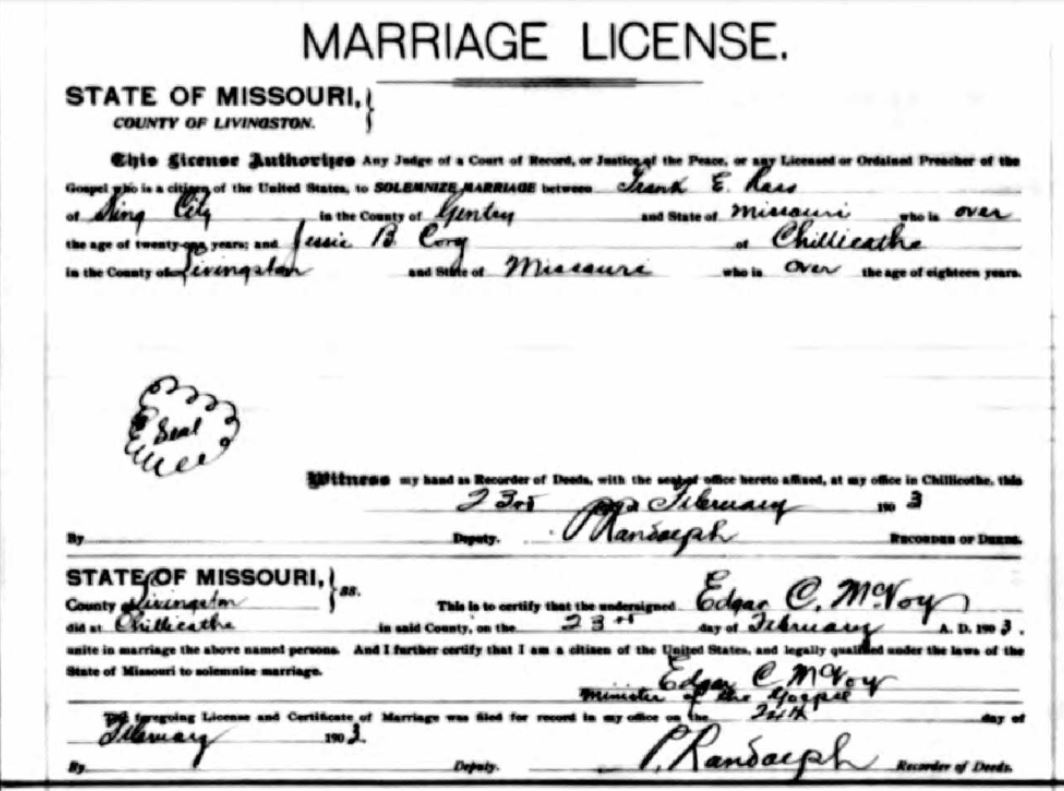 MARRIAGE LICENSE.
STATE OF MISSOURI,
COUNTY OF LIVINGSTON.
This License Authorizes Any Judge of a Court of Record, or Justice of the Peace, or any Licensed or Ordained Preacher of the
Gospel who is a citizen of the United States, to SOLEMNIZE MARRIAGE between Frank E. Rass
of King City in the County of Gentry and State of Missouri who is over
the age of twenty-one years; and Jessie B. Cory of Chillicothe
in the County of Livingston and State of Missouri who is over the age of eighteen years.
Seal
Witness my hand as Recorder of Deeds, with the seal of office hereto affixed, at my office in Chillicothe, this
23rd day of February 1903
By Deputy. P. Randolph RECORDER OF DEEDS.
STATE OF MISSOURI, ss.
County of Livingston This is to certify that the undersigned Edgar C. McVoy
did at Chillicothe in said County, on the 23rd day of February A. D. 1903.
unite in marriage the above named persons. And I further certify that I am a citizen of the United States, and legally qualified under the laws of the
State of Missouri to solemnize marriage. Edgar C McVoy
Minister of the Gospel
The foregoing License and Certificate of Marriage was filed for record in my office on the 24th day of
February 1903.
By Deputy. P. Randolph Recorder of Deeds.